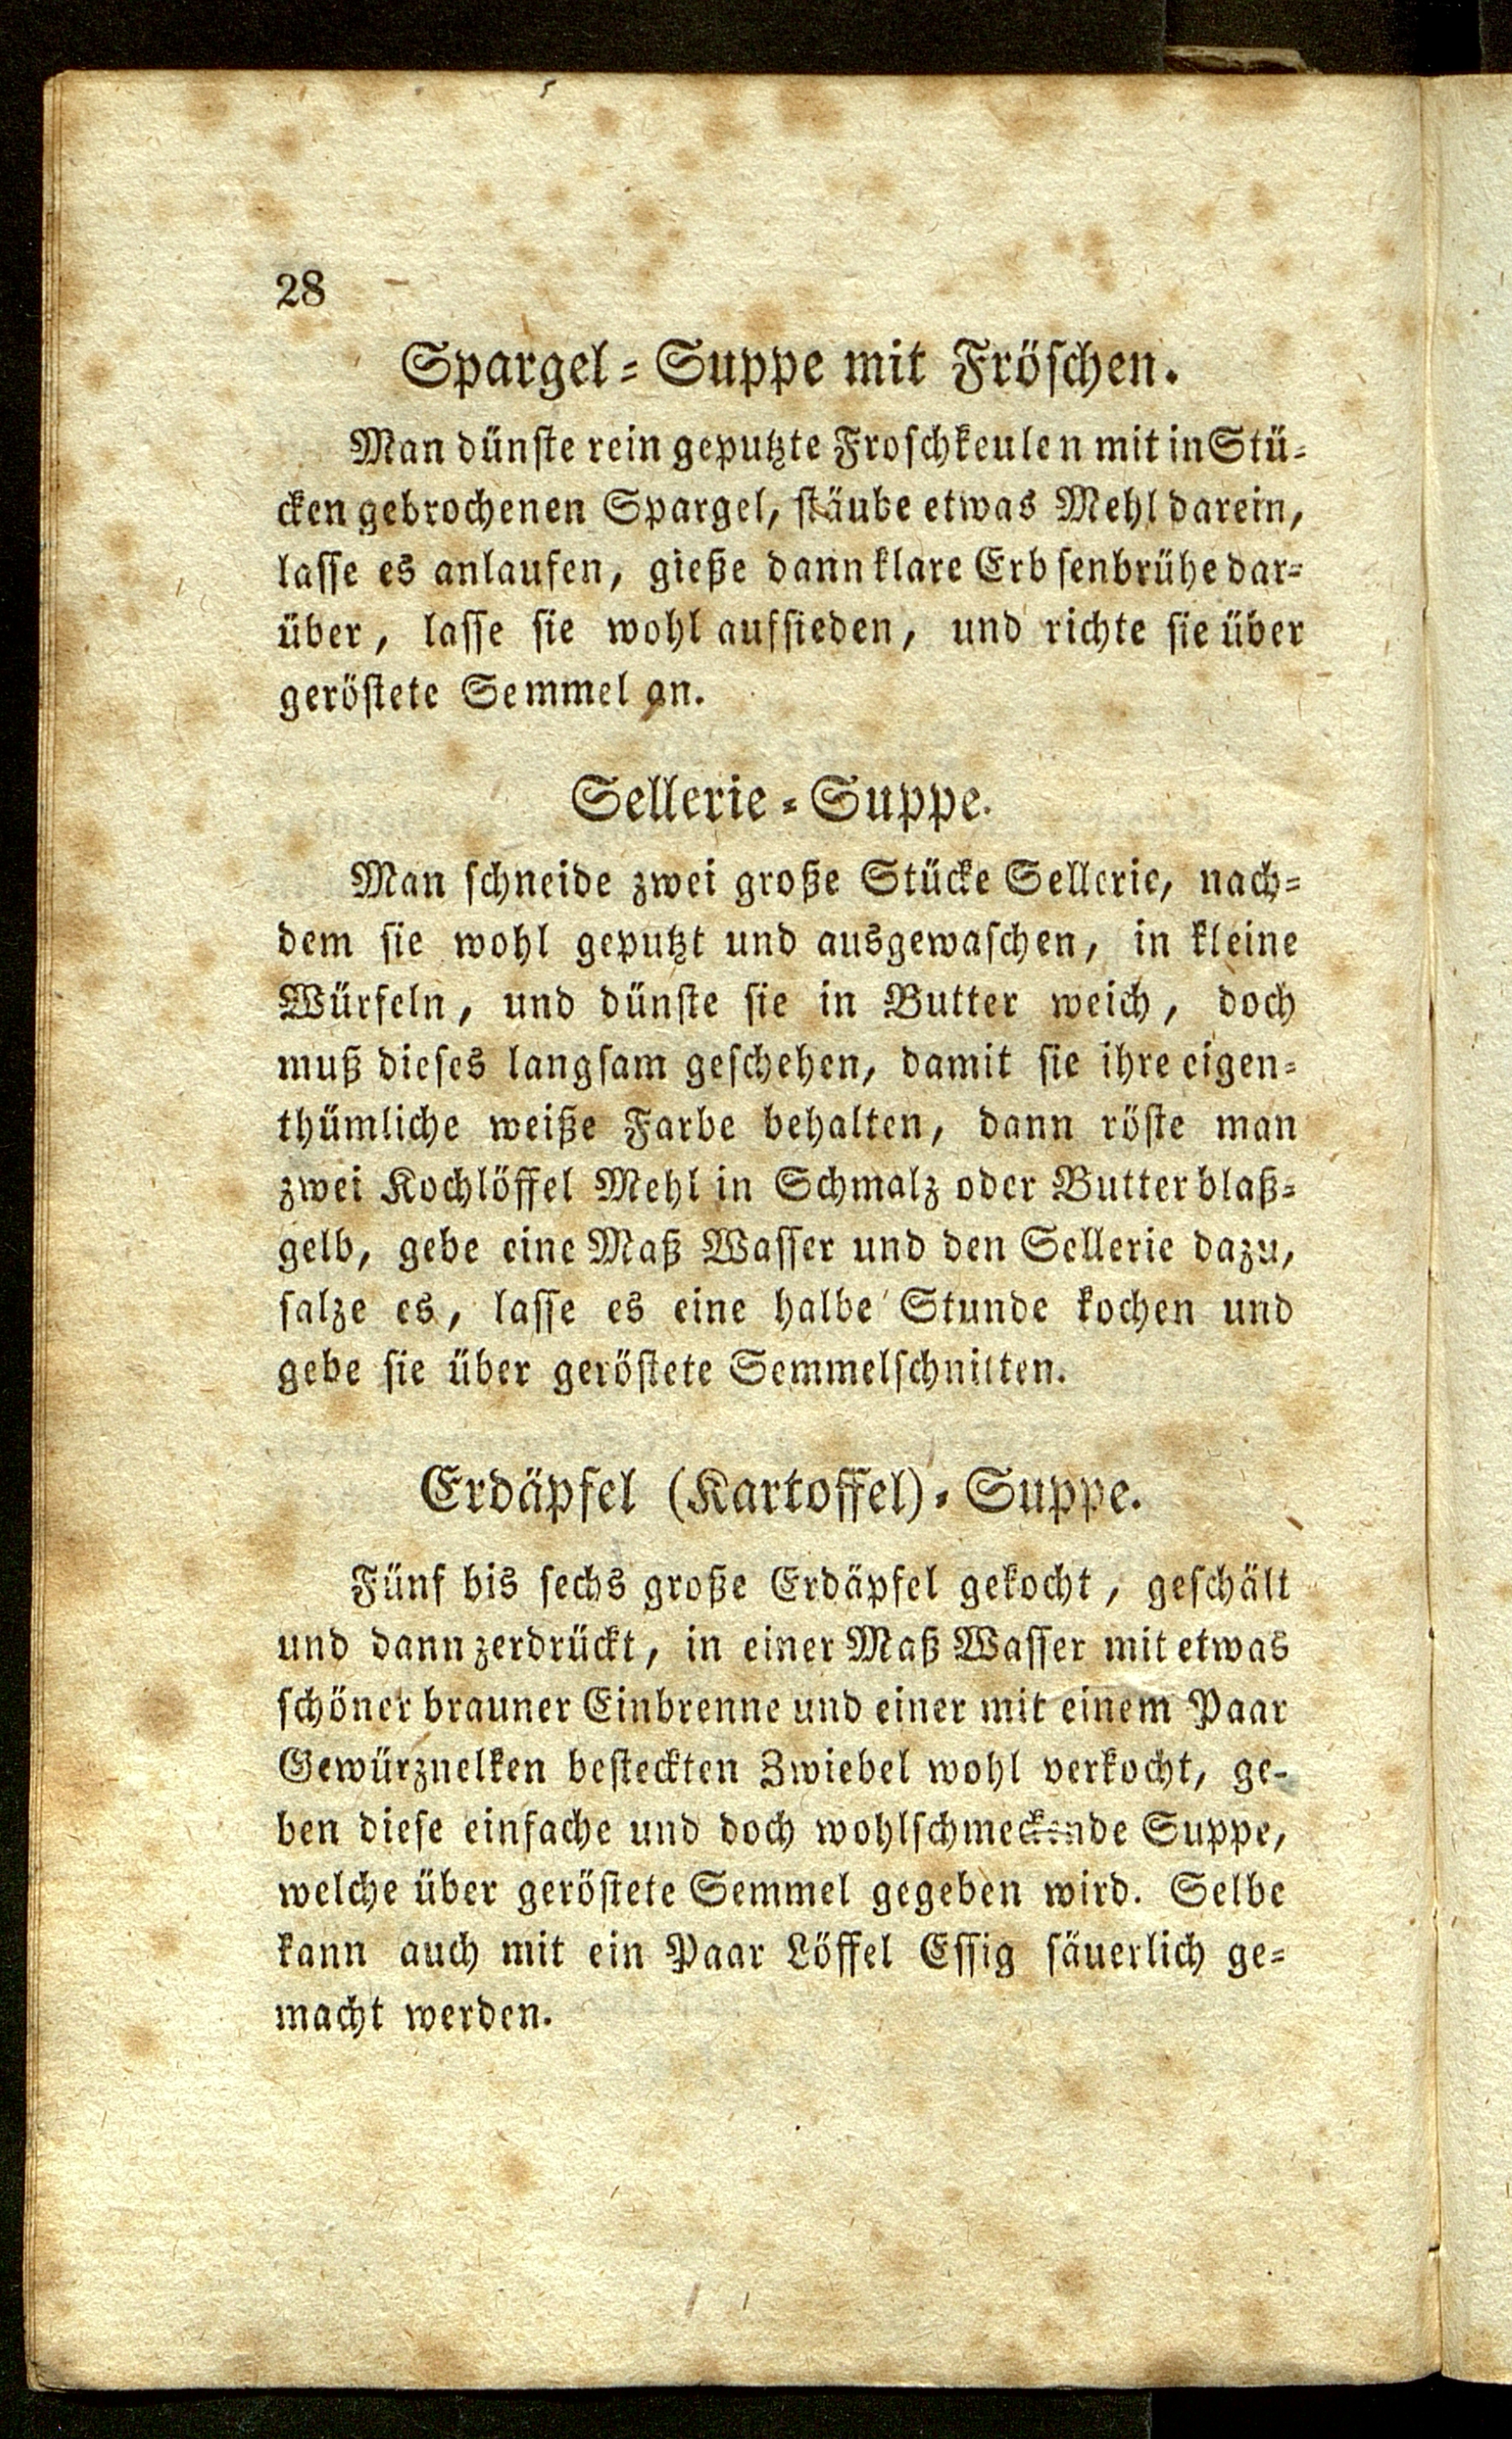 28
Spargel-Suppe mit Fröschen.
Man dünste rein geputzte Froschkeulen mit in Stü-
cken gebrochenen Spargel, stäube etwas Mehl darein,
lasse es anlaufen, gieße dann klare Erbsenbrühe dar-
über, lasse sie wohl aufsieden, und richte sie über
geröstete Semmel an.
Sellerie-Suppe.
Man schneide zwei große Stücke Sellerie, nach-
dem sie wohl geputzt und ausgewaschen, in kleine
Würfeln, und dünste sie in Butter weich, doch
muß dieses langsam geschehen, damit sie ihre eigen-
thümliche weiße Farbe behalten, dann röste man
zwei Kochlöffel Mehl in Schmalz oder Butter blaß-
gelb, gebe eine Maß Wasser und den Sellerie dazu,
salze es, lasse es eine halbe Stunde kochen und
gebe sie über geröstete Semmelschnitten.
Erdäpfel (Kartoffel)-Suppe.
Fünf bis sechs große Erdäpfel gekocht, geschält
und dann zerdrückt, in einer Maß Wasser mit etwas
schöner brauner Einbrenne und einer mit einem Paar
Gewürznelken besteckten Zwiebel wohl verkocht, ge-
ben diese einfache und doch wohlschmeckende Suppe,
welche über geröstete Semmel gegeben wird. Selbe
kann auch mit ein Paar Löffel Essig säuerlich ge-
macht werden.